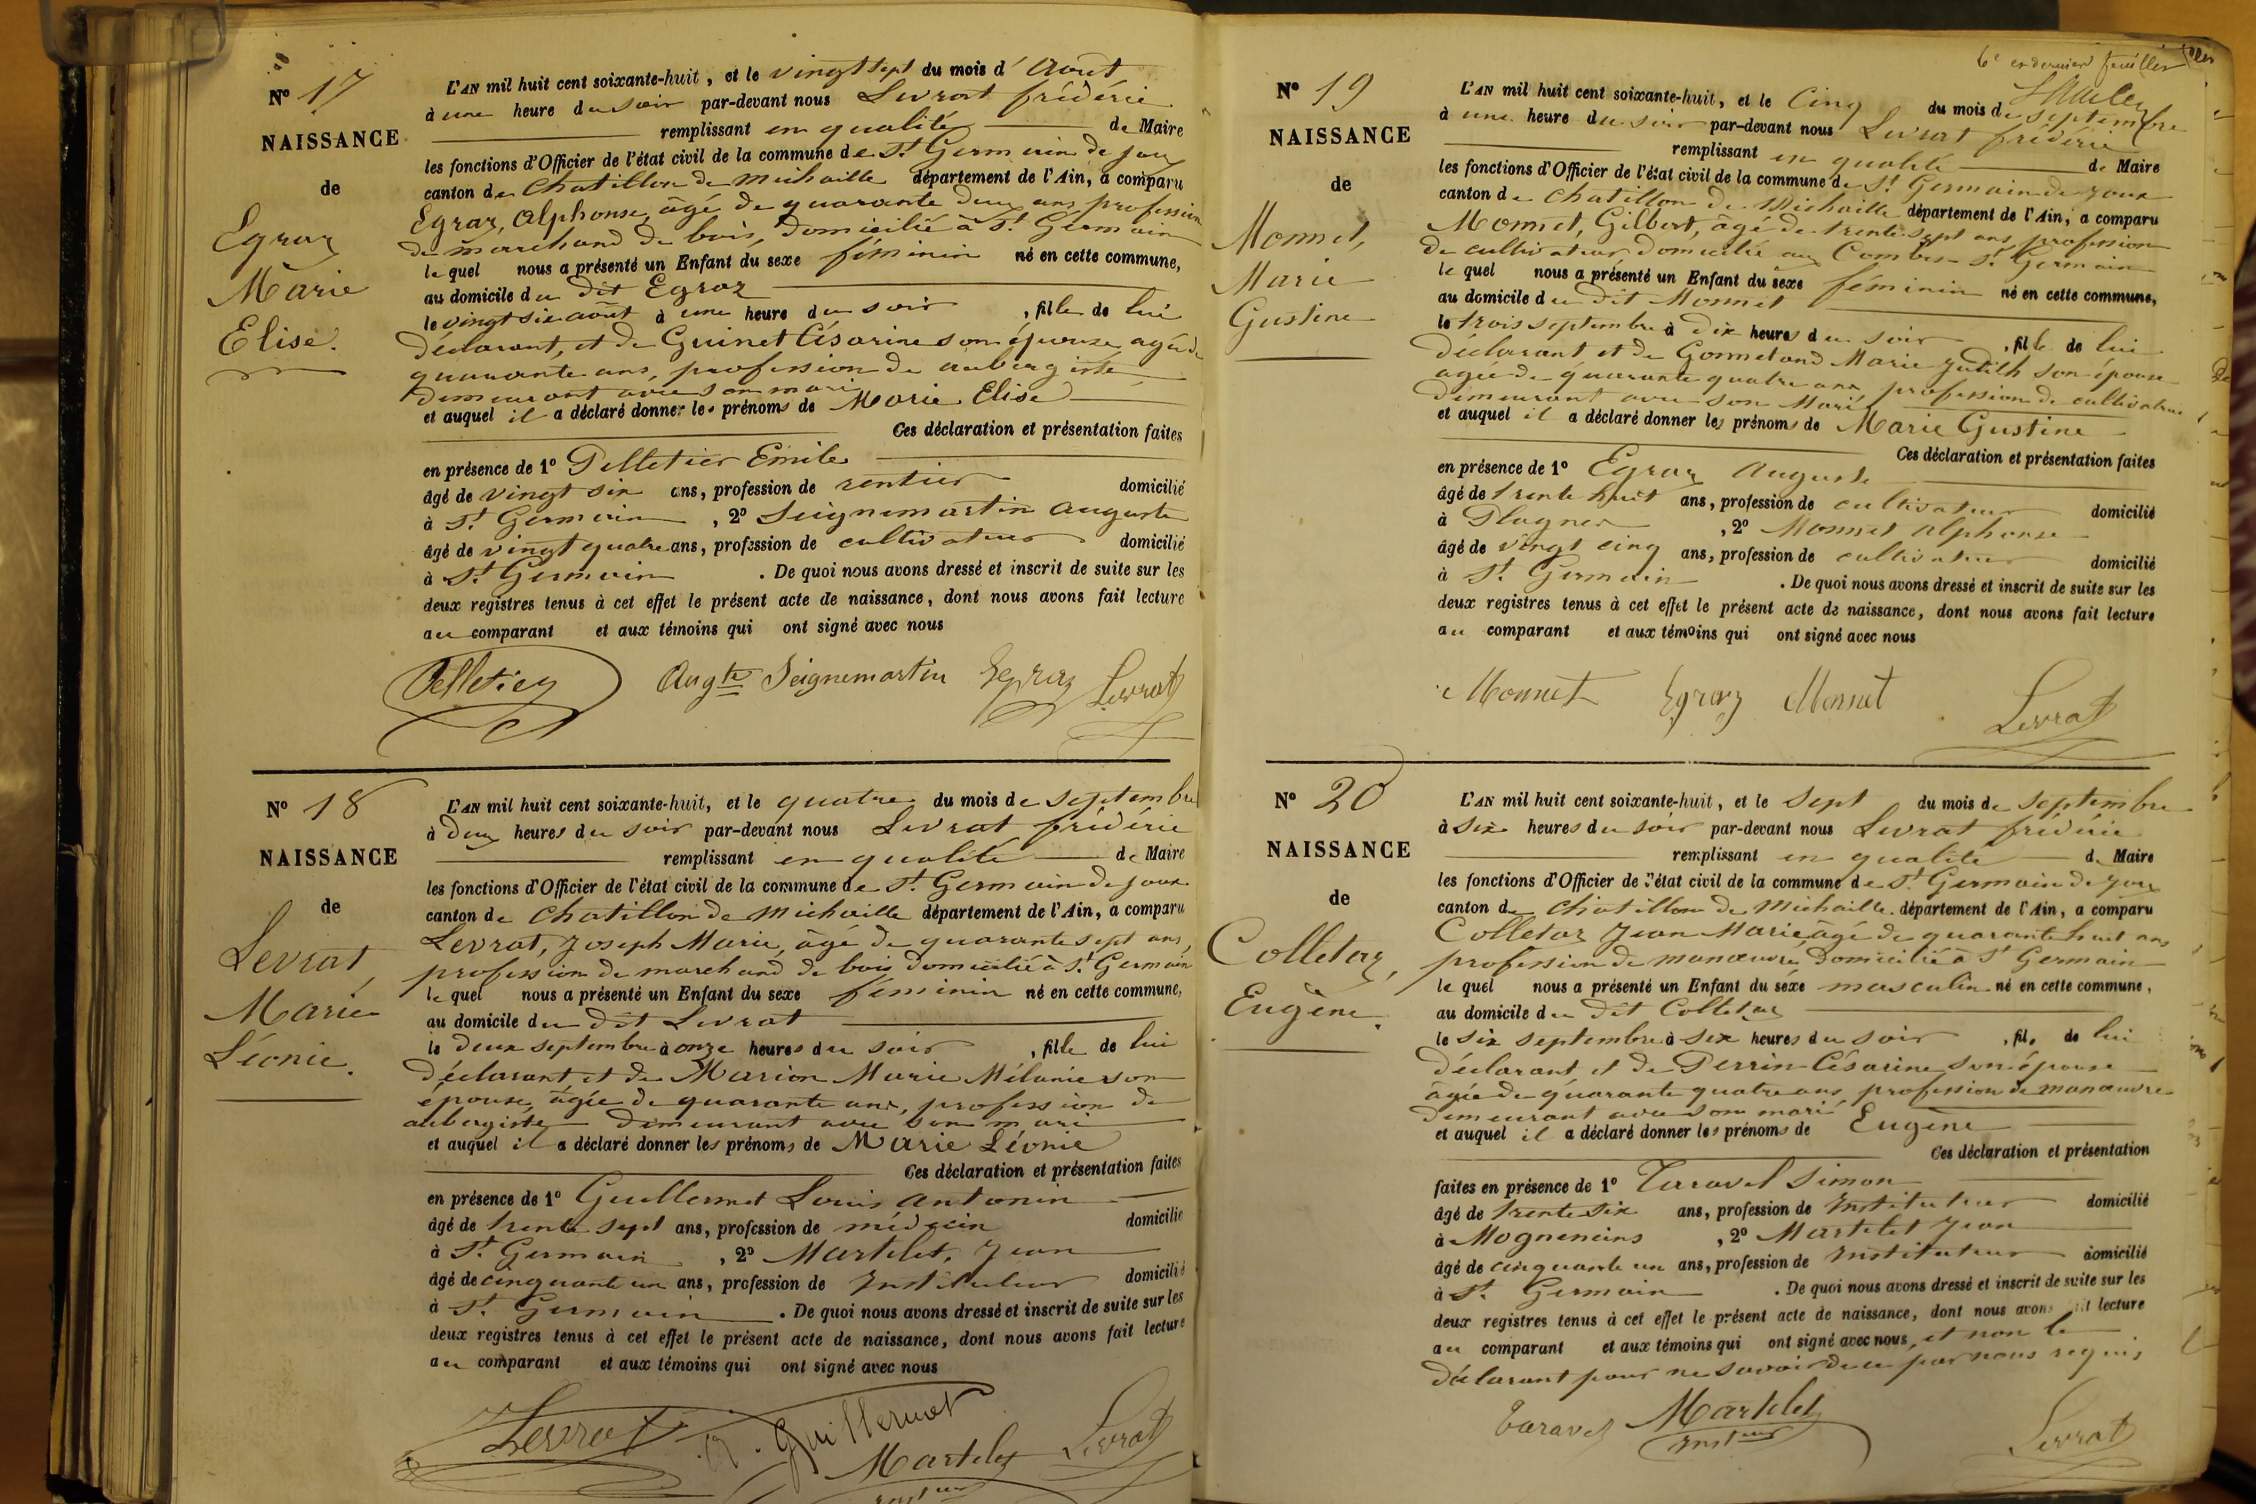 N° 17
NAISSANCE
de
Egraz
Marie
Elise.
L'AN mil huit cent soixante-huit, et le vingt sept du mois d'Août
à une heure du soir par-devant nous Levrat frédéric
remplissant en qualité de Maire
les fonctions d'Officier de l'état civil de la commune de St Germain de joux
canton de Chatillon de Michaille département de l'Ain, a comparu
Egraz, Alphonse, âgé de quarante deux ans profession
de marchand de bois, domicilié à St Germain
lequel nous a présenté un Enfant du sexe féminin né en cette commune,
au domicile du dit Egraz
le vingt six août à une heure du soir, fille de lui
déclarant, et de Guinet Césarine son épouse, agée de
quarante ans, profession de aubergiste
demeurant avec son mari
et auquel il a déclaré donner les prénoms de Marie Elise
Ces déclaration et présentation faites
en présence de 1° Pelletier Emile
âgé de vingt six ans, profession de rentier domicilié
à St Germain, 2° Seignemartin Auguste
âgé de vingt quatre ans, profession de cultivateur domicilié
à St Germain. De quoi nous avons dressé et inscrit de suite sur les
deux registres tenus à cet effet le présent acte de naissance, dont nous avons fait lecture
au comparant et aux témoins qui ont signé avec nous
Pelletier Augte Seignemartin Egraz Levrat
N° 18
NAISSANCE
de
Levrat,
Marie
Léonie.
L'AN mil huit cent soixante-huit, et le quatre du mois de septembre
à deux heures du soir par-devant nous Levrat frédéric
remplissant en qualité de Maire
les fonctions d'Officier de l'état civil de la commune de St Germain de joux
canton de Chatillon de Michaille département de l'Ain, a comparu
Levrat, Joseph Marie, âgé de quarante sept ans,
profession de marchand de bois domicilié à St Germain
lequel nous a présenté un Enfant du sexe féminin né en cette commune,
au domicile du dit Levrat
le deux septembre à onze heures du soir, fille de lui
déclarant, et de Marion Marie Mélanie son
épouse, âgée de quarante ans, profession de
aubergiste demeurant avec son mari
et auquel il a déclaré donner les prénoms de Marie Léonie
Ces déclaration et présentation faites
en présence de 1° Guillermet Louis Antonin
âgé de trente sept ans, profession de médecin domicilié
à St Germain, 2° Martelet, Jean
âgé de cinquante un ans, profession de Instituteur domicilié
à St Germain. De quoi nous avons dressé et inscrit de suite sur les
deux registres tenus à cet effet le présent acte de naissance, dont nous avons fait lecture
au comparant et aux témoins qui ont signé avec nous
Levrat A. Guillermet Martelet Levrat
6e et dernier feuillet
N° 19
NAISSANCE
de
Monnet,
Marie
Gustine
L'AN mil huit cent soixante-huit, et le Cinq du mois de septembre
à une heure du soir par-devant nous Levrat frédéric
remplissant en qualité de Maire
les fonctions d'Officier de l'état civil de la commune de St Germain de Joux
canton de Chatillon de Michaille département de l'Ain, a comparu
Monnet, Gilbert, âgé de trente sept ans, profession
de cultivateur, domicilié aux Combes St Germain
lequel nous a présenté un Enfant du sexe féminin né en cette commune,
au domicile du dit Monnet
le trois septembre à dix heures du soir, fille de lui
déclarant, et de Gonnetand Marie Judith son épouse
agée de quarante quatre ans, profession de cultivatrice
demeurant avec son Mari
et auquel il a déclaré donner les prénoms de Marie Gustine
Ces déclaration et présentation faites
en présence de 1° Egraz Auguste
âgé de trente huit ans, profession de cultivateur domicilié
à Plagnes, 2° Monnet Alphonse
âgé de vingt cinq ans, profession de cultivateur domicilié
à St Germain. De quoi nous avons dressé et inscrit de suite sur les
deux registres tenus à cet effet le présent acte de naissance, dont nous avons fait lecture
au comparant et aux témoins qui ont signé avec nous
Monnet Egraz Monnet Levrat
N° 20
NAISSANCE
de
Colletaz,
Eugène.
L'AN mil huit cent soixante-huit, et le sept du mois de septembre
à six heures du soir par-devant nous Levrat frédéric
remplissant en qualité de Maire
les fonctions d'Officier de l'état civil de la commune de St Germain de Joux
canton de Chatillon de Michaille département de l'Ain, a comparu
Colletaz Jean Marie âgé de quarante huit ans
profession de manœuvre, domicilié à St Germain
lequel nous a présenté un Enfant du sexe masculin né en cette commune,
au domicile du dit Colletaz
le six septembre à six heures du soir, fils de lui
déclarant et de Perrin Césarine son épouse
âgée de quarante quatre ans profession de manœuvre
demeurant avec son mari
et auquel il a déclaré donner les prénoms de Eugène
Ces déclaration et présentation
faites en présence de 1° Taravel Simon
âgé de trente six ans, profession de Instituteur domicilié
à Mogneneins, 2° Martelet Jean
âgé de cinquante un ans, profession de Instituteur domicilié
à St Germain. De quoi nous avons dressé et inscrit de suite sur les
deux registres tenus à cet effet le présent acte de naissance, dont nous avons fait lecture
au comparant et aux témoins qui ont signé avec nous, et non le
déclarant pour ne savoir de ce par nous requis,
Taravel Martelet Levrat
Insteur